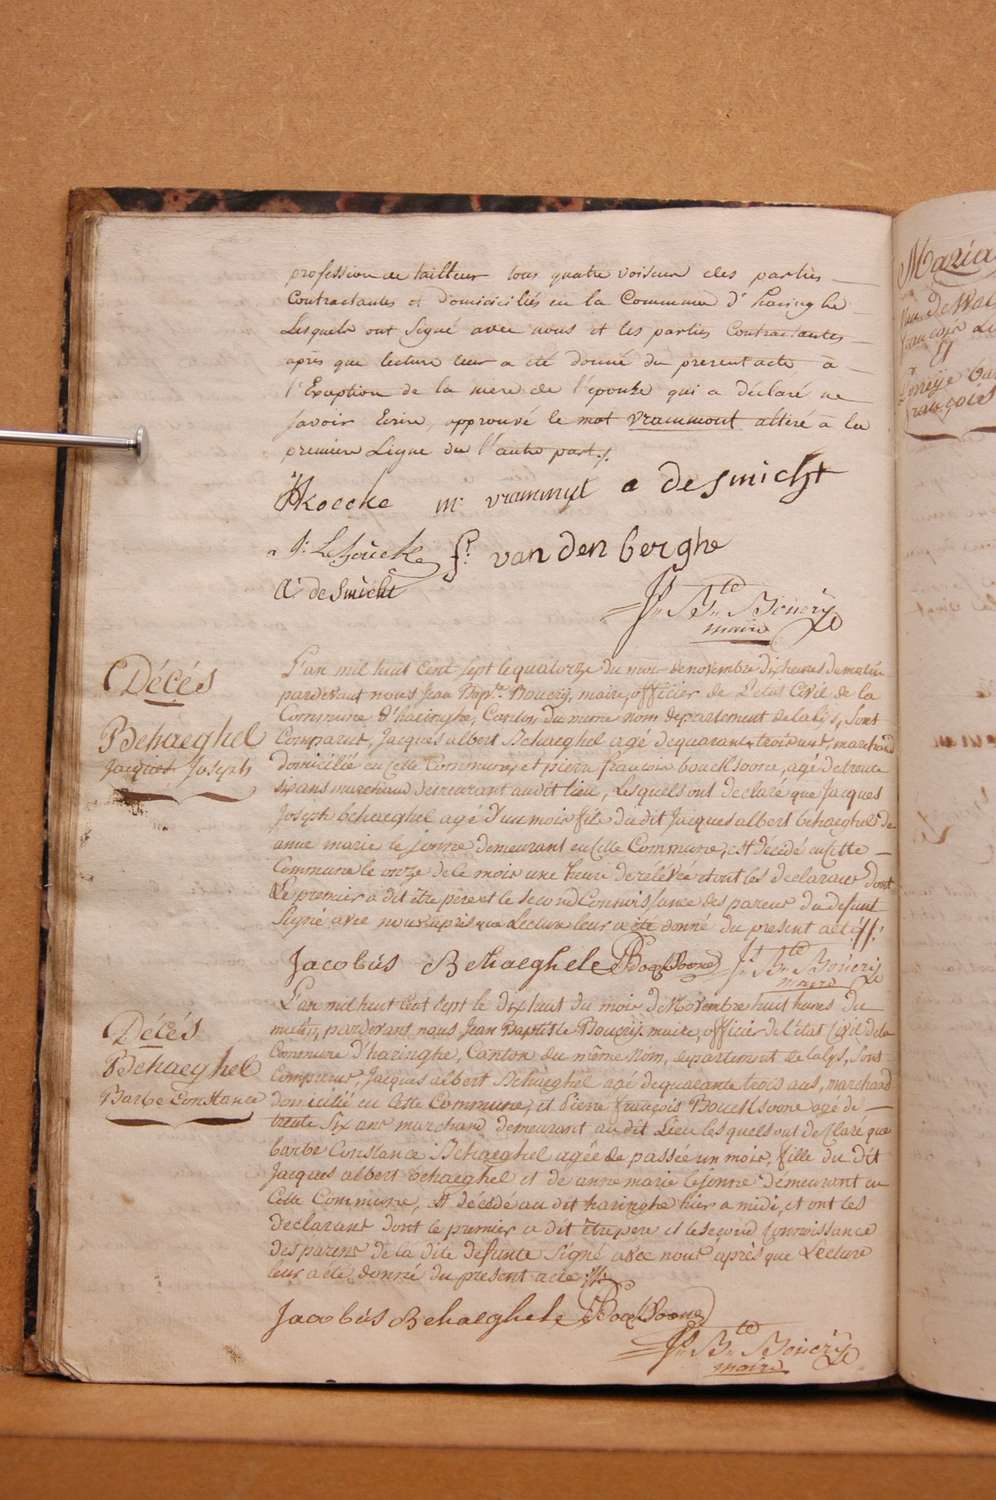 profession de tailleur tous quatre voisins des parties
Contractantes et domiciliés en la Commune d'haringhe
Lesquels ont signé avec nous et les parties Contractantes
après que lecture leur a été donné du present acte a
l'Exception de la mere de l'epouse qui a déclaré ne
savoir Ecrire, approuvé le mot vrammout altéré a la
premiere Ligne de l'autre part ./.
Kocke m: vrammyt a deSmicht
f: van den berghe
A: desmicht
Jn Bte Bouery
maire
Décés
Behaeghel
Jacques Joseph
L'an mil huit Cent sept le quatorze du mois de novembre dix heures du matin
pardevant nous Jean Bapte Bouery, maire, officier de L'etat Civil de la
Commune d'haringhe, Canton du meme nom departement de la lys, sont
Comparus, Jacques albert Behaeghel agé de quarante trois ans, marchand
domicilié en Cette Commune et pierre françois bouckoone, agé de trente
six ans marchand demeurant audit lieu, Lesquels ont declaré que Jacques
Joseph behaeghel agé d'un mois fils du dit Jacques albert behaeghel & de
anne marie le jeune demeurant en Cette Commune, est décédé en Cette
Commune le onze de Ce mois une heure de relevée et ont les declarans dont
Le premier a dit être père et le second Connoissance des parens du defunt
Signé avec nous après que Lecture leur a été donné du present acte //:
Jacobús Behaeghel Jn Bte Bouery
maire
Décés
Behaeghel
Barbe Constance
L'an mil huit Cent Sept le dix huit du mois de Novembre huit heures du
matin, pardevant nous Jean Baptiste Bouery, maire, officier de l'état Civil de la
Commune d'haringhe, Canton du même Nom, departement de la lys, sont
Comparus, Jacques albert Behaeghel agé de quarante trois ans, marchand
domicilié en Cette Commune, et Pierre françois Bouckoone agé de
trente Six ans marchand demeurant au dit Lieu lesquels ont declaré que
barbe Constance Behaeghel agée de passée un mois, fille du dit
Jacques albert behaeghel et de anne marie lejeune demeurant en
Cette Commune, est décédé au dit haringhe hier a midi, et ont les
declarans dont le premier a dit être pere et le second Connoissance
des parens de la dite defunte Signé avec nous après que Lecture
leur a été donné du present acte //:
Jacobús Behaeghel
Jn Bte Bouery
maire
Maria